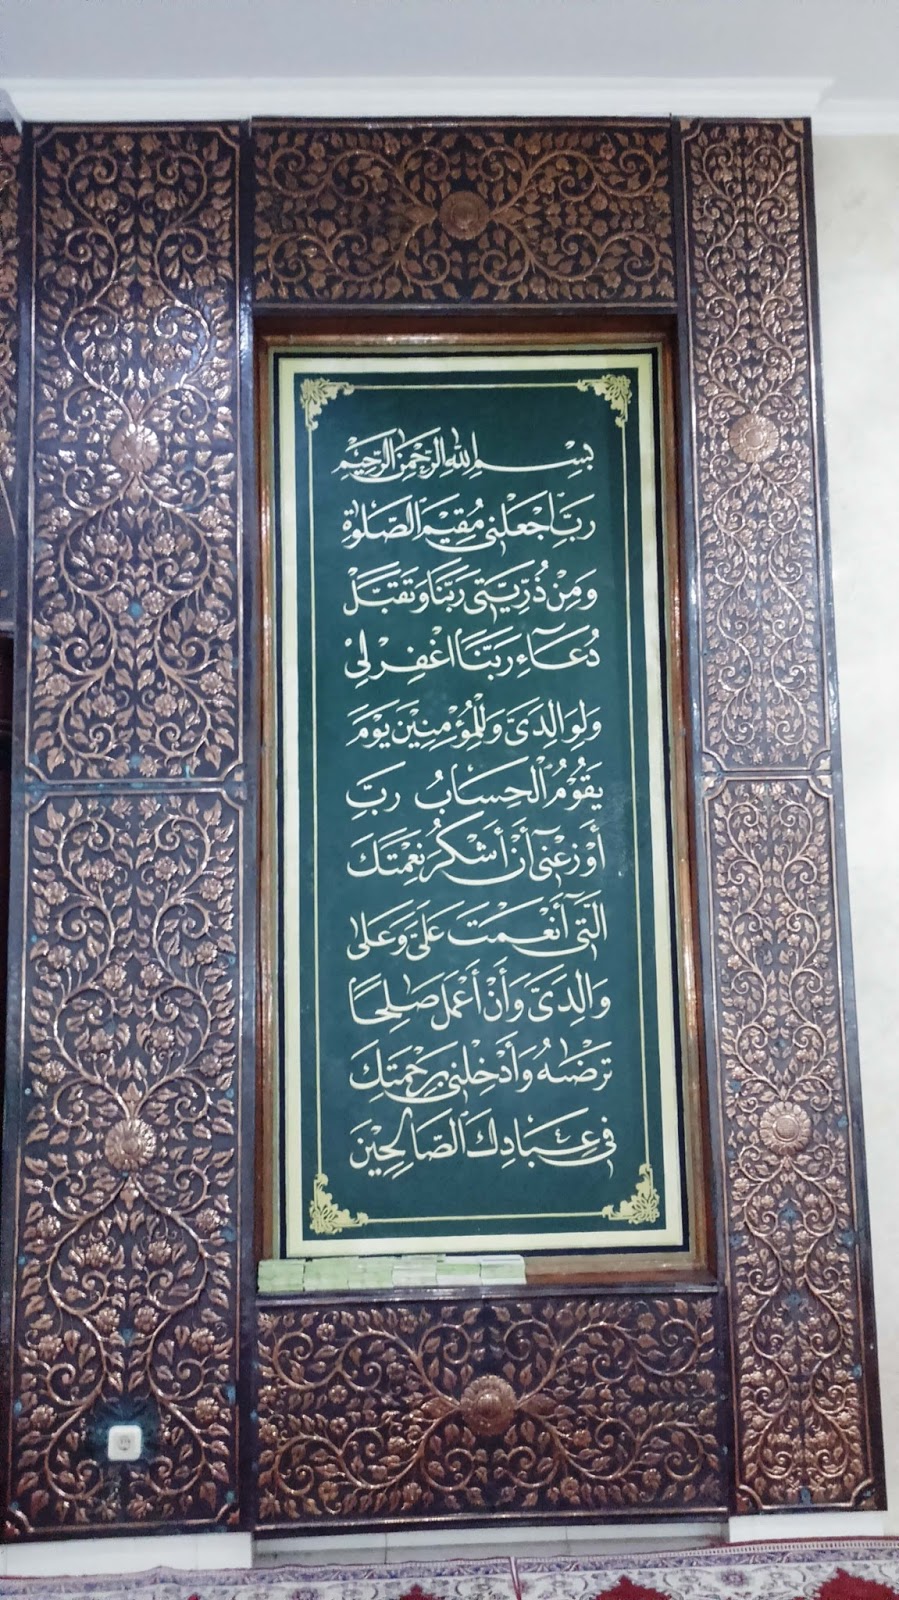 بِسْمِ اللهِ الرَّحْمٰنِ الرَّحِيْمِ
رَبِّ اجْعَلْنِي مُقِيْمَ الصَّلٰوةِ
وَمِنْ ذُرِّيَّتِي رَبَّنَا وَتَقَبَّلْ
دُعَآءِ رَبَّنَا اغْفِرْ لِيْ
وَلِوَالِدَيَّ وَلِلْمُؤْمِنِيْنَ يَوْمَ
يَقُوْمُ الْحِسَابُ رَبِّ
أَوْزِعْنِيٓ أَنْ أَشْكُرَ نِعْمَتَكَ
الَّتِيٓ أَنْعَمْتَ عَلَيَّ وَعَلٰى
وَالِدَيَّ وَأَنْ أَعْمَلَ صَالِحًا
تَرْضٰىهُ وَأَدْخِلْنِي بِرَحْمَتِكَ
فِي عِبَادِكَ الصَّالِحِيْنَ